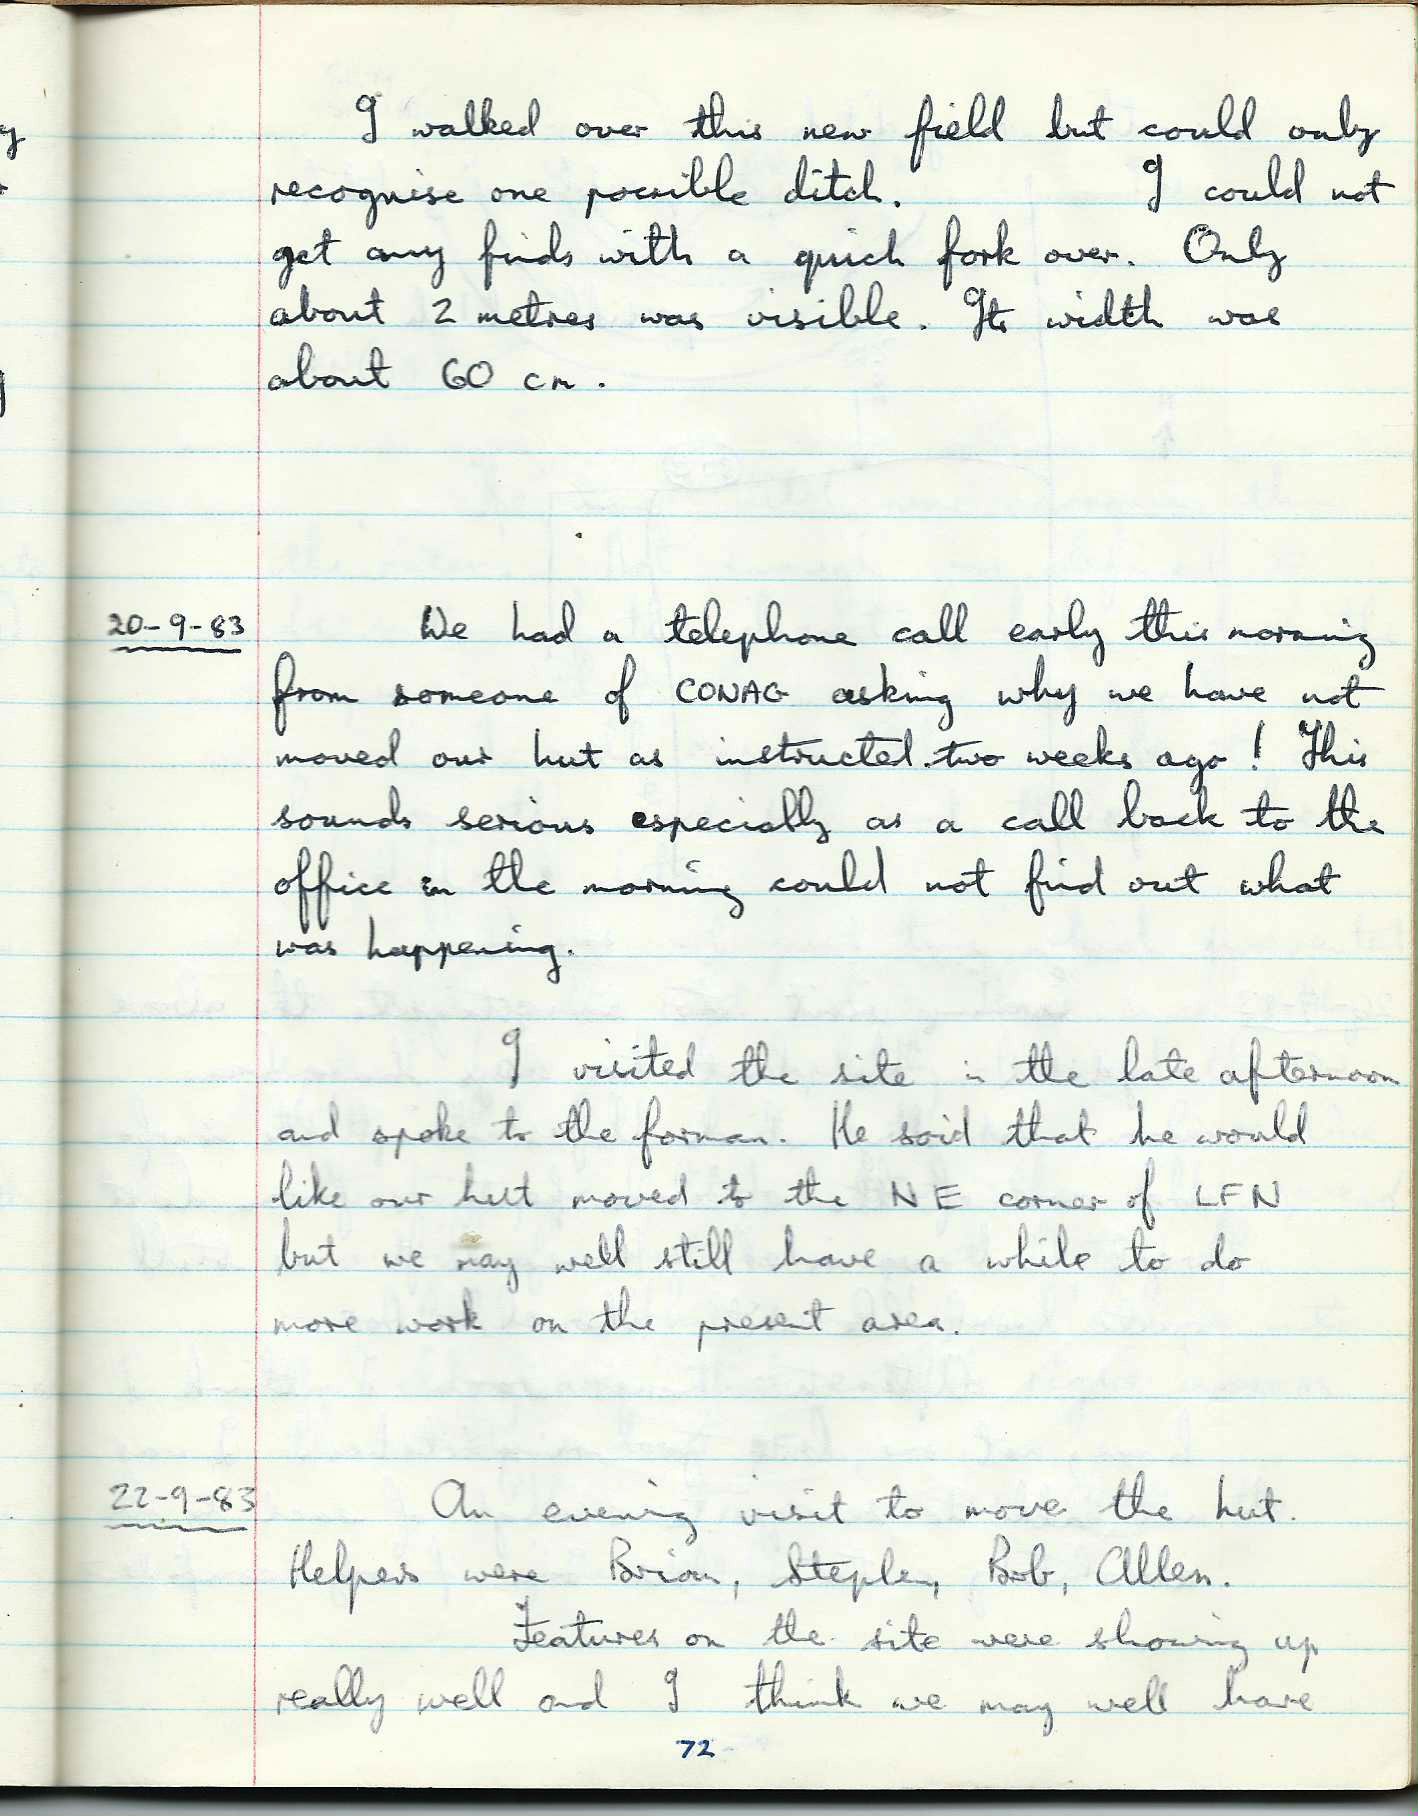 I walked over this new field but could only
recognise one possible ditch. I could not
get any finds with a quick fork over. Only
about 2 metres was visible. Its width was
about 60 cm.
20-9-83 We had a telephone call early this morning
from someone of CONAG asking why we have not
moved our hut as instructed two weeks ago! This
sounds serious especially as a call back to the
office in the morning could not find out what
was happening.
I visited the site in the late afternoon
and spoke to the forman. He said that he would
like our hut moved to the NE corner of LFN
but we may well still have a while to do
more work on the present area.
22-9-83 An evening visit to move the hut.
Helpers were Brian, Stephen, Bob, Allen.
Features on the site were showing up
really well and I think we may well have
72